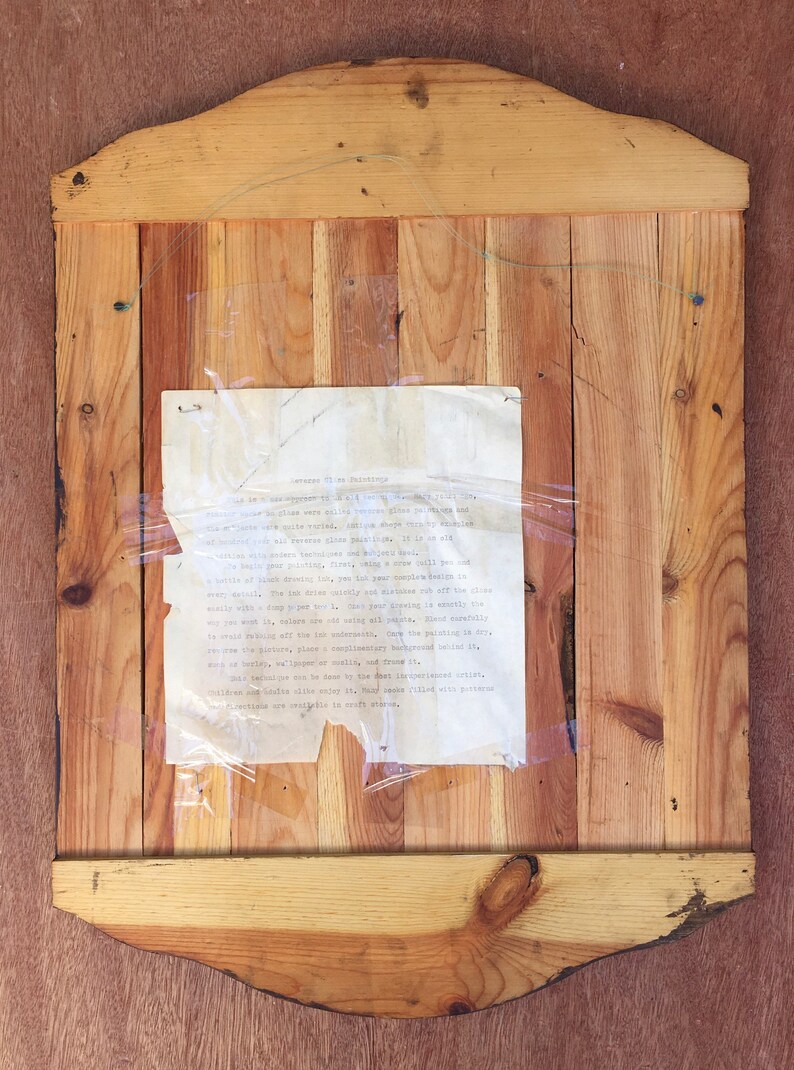 Reverse Glass Paintings
This is a new approch to an old technique. Many years ago,
on glass were called reverse glass paintings and
the subjects were quite varied. Antique shops turn up examples
of hundred year old reverse glass paintings. It is an old
tradition with modern techniques and subjects used.
To begin your painting, first, using a crow quill pen and
a bottle of black drawing ink, you ink your complete design in
every detail. The ink dries quickly and mistakes rub off the glass
easily with a damp paper towel. Once your drawing is exactly the
way you want it, colors are add using oil paints. Blend carefully
to avoid rubbing off the ink underneath. Once the painting is dry,
reverse the picture, place a complimentary background behind it,
such as burlap, wallpaper or muslin, and frame it.
This technique can be done by the most inexperienced artist.
Children and adults alike enjoy it. Many books filled with patterns
and directions are available in craft stores.